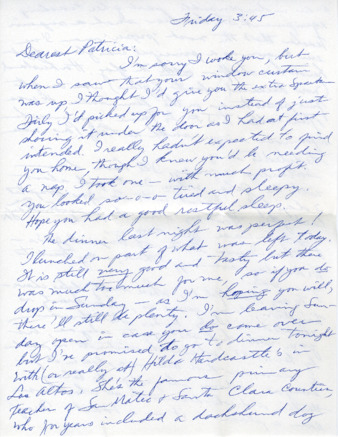 Friday 3:45
Dearest Patricia:
I'm sorry I woke you, but
when I saw that your window curtain
was up I thought I'd give you the extra Spectator
Daily I'd picked up for you instead of just
shoving it under the door as I had at first
intended. I really hadn't expected to find
you home, though I knew you'd be needing
a nap. I took one — with much profit.
You looked so-o-o tired and sleepy.
Hope you had a good restful sleep.
The dinner last night was perfect!
I lunched on part of what was left today.
It is still very good and tasty but there
was much too much for me, so if you do
drop in Sunday — as I'm hoping you will,
there'll still be plenty. I'm leaving Sun-
day open in case you do come over
but I've promised to go to dinner tonight
with (or really at) Hilda Hardcastle's in
Los Altos. She's the famous primary
teacher of San Mateo & Santa Clara Counties,
who for years included a dachshund dog